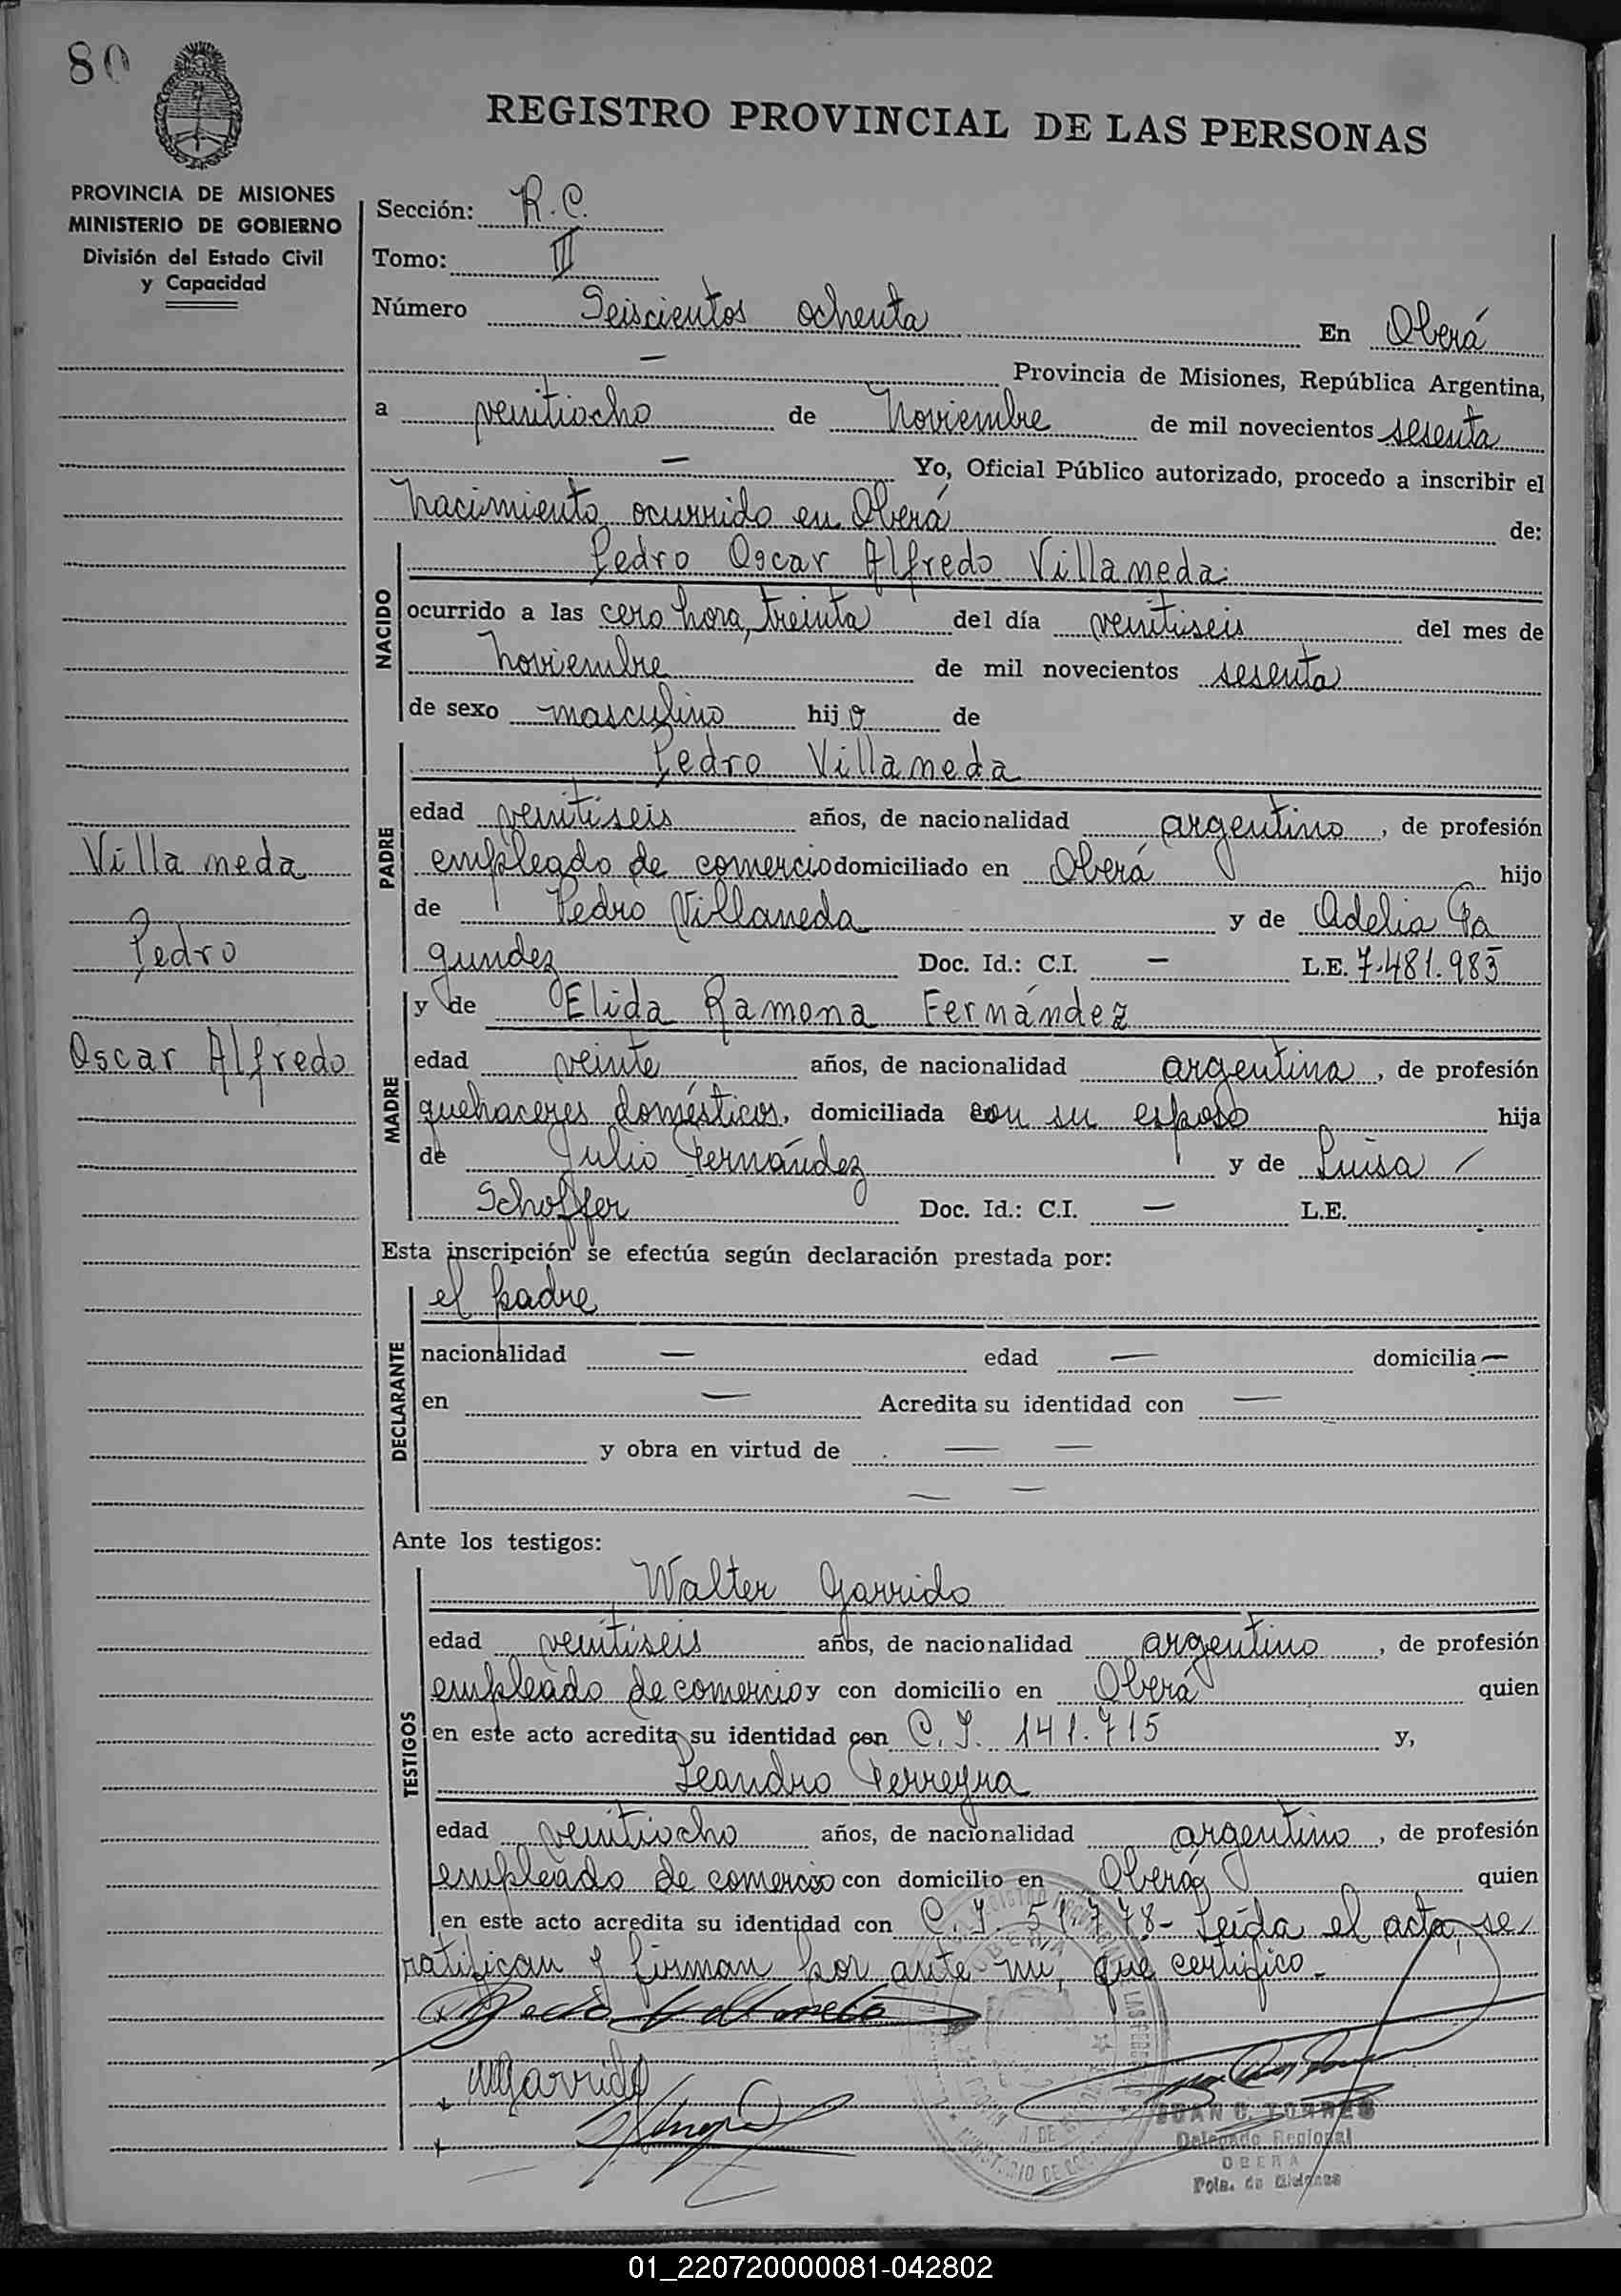 80
REGISTRO PROVINCIAL DE LAS PERSONAS
PROVINCIA DE MISIONES
MINISTERIO DE GOBIERNO
División del Estado Civil
y Capacidad
Sección: R. C.
Tomo: III
Número Seiscientos ochenta En Oberá
— Provincia de Misiones, República Argentina,
a veintiocho de Noviembre de mil novecientos sesenta
— Yo, Oficial Público autorizado, procedo a inscribir el
nacimiento ocurrido en Oberá de:
NACIDO
Pedro Oscar Alfredo Villameda
ocurrido a las cero hora, treinta del día veintiseis del mes de
noviembre de mil novecientos sesenta
de sexo masculino hijo de
PADRE
Pedro Villameda
edad veintiseis años, de nacionalidad argentino, de profesión
empleado de comercio domiciliado en Oberá hijo
de Pedro Villaneda y de Adelia Fa
gundez Doc. Id.: C.I. — L.E. 7.481.983
MADRE
y de Elida Ramona Fernández
edad veinte años, de nacionalidad argentina, de profesión
quehaceres domésticos, domiciliada con su esposo hija
de Julio Fernández y de Luisa
Schoffer Doc. Id.: C.I. — L.E.
Villa meda
Pedro
Oscar Alfredo
Esta inscripción se efectúa según declaración prestada por:
DECLARANTE
el padre
nacionalidad — edad — domicilia —
en — Acredita su identidad con —
y obra en virtud de — —
— —
Ante los testigos:
TESTIGOS
Walter Garrido
edad veintiseis años, de nacionalidad argentino, de profesión
empleado de comercio y con domicilio en Oberá quien
en este acto acredita su identidad con C. I. 141.715 y,
Leandro Ferreyra
edad veintiocho años, de nacionalidad argentino, de profesión
empleado de comercio con domicilio en Oberá quien
en este acto acredita su identidad con C. I. 51.778- Leída el acta, se
ratifican y firman por ante mi, que certifico.
WGarrido
JUAN C. TORRES
Delegado Regional
OBERA
Pcia. de Misiones
01_220720000081-042802